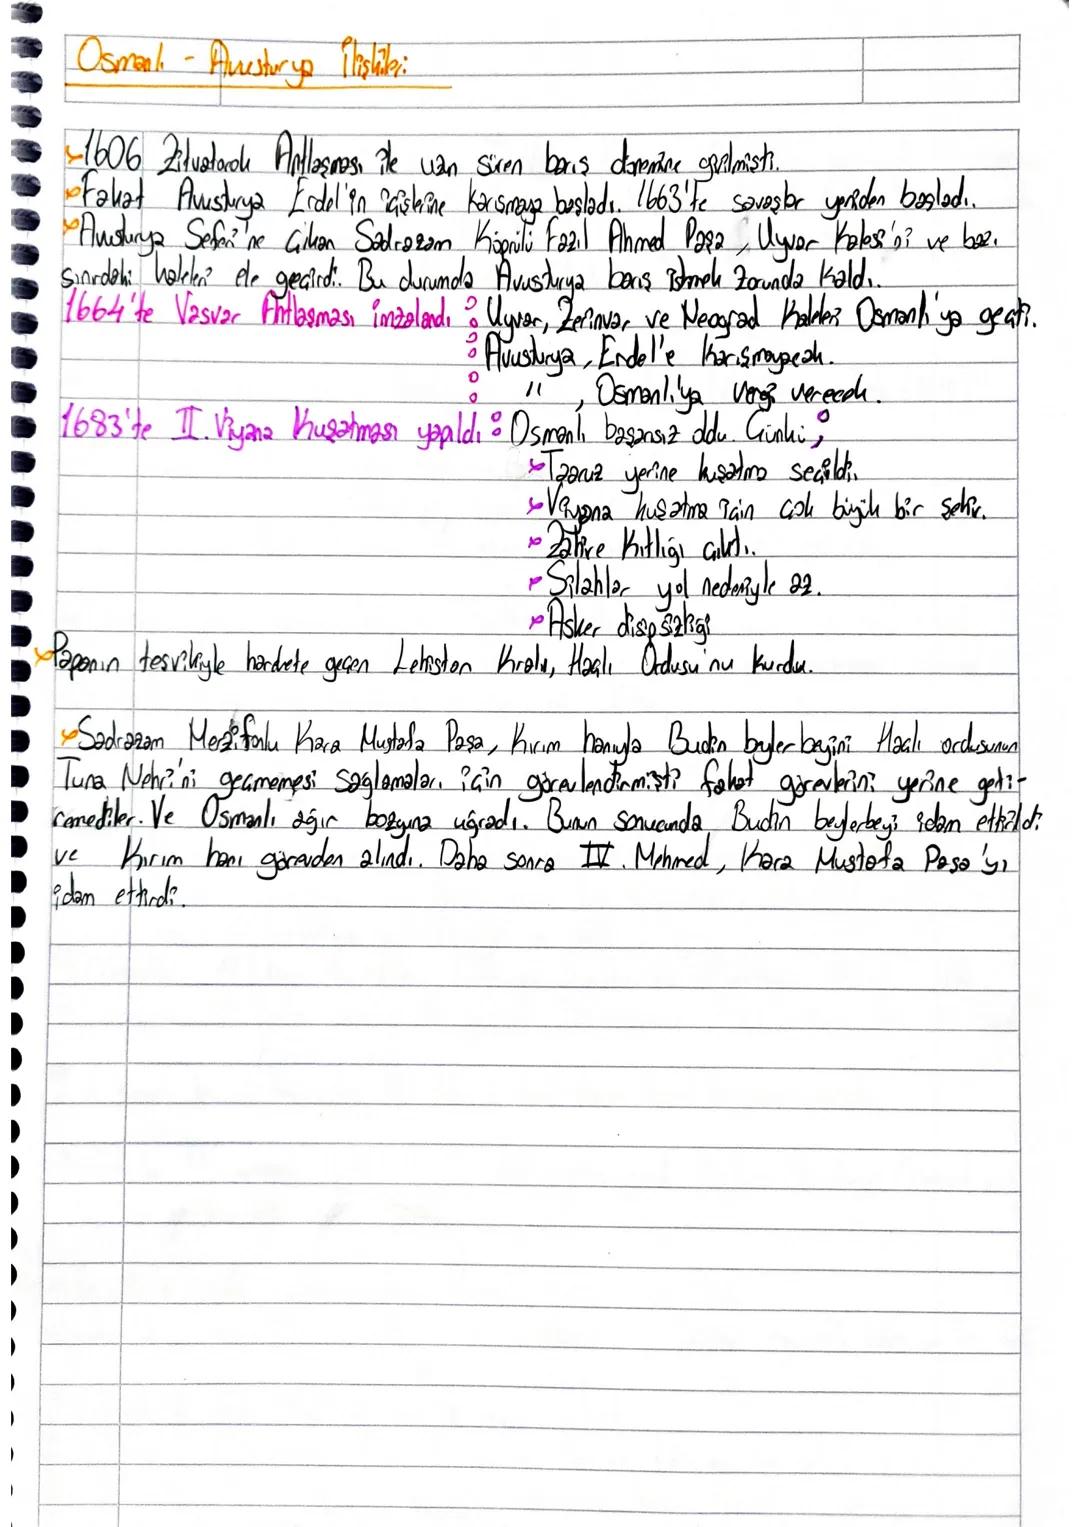 Osmanlı - Avusturya İlişkileri
1606 Zitvatorok Antlaşması ile uzun süren barış dönemine girilmişti.
Fakat Avusturya Erdel'in içişlerine karışmaya başladı. 1663'te savaşlar yeniden başladı.
Avusturya Seferi'ne Çıkan Sadrazam Köprülü Fazıl Ahmed Paşa, Uyvar Kalesi'ni ve bazı
sınırdaki kaleleri ele geçirdi. Bu durumda Avusturya barış istemek zorunda kaldı.
1664'te Vasvar Antlaşması imzalandı : Uyvar, Zerinvar ve Neograd Kaleleri Osmanlı'ya geçti.
Avusturya, Erdel'e karışmayacak.
" , Osmanlı'ya vergi verecek.
1683'te II. Viyana Kuşatması yapıldı : Osmanlı başarısız oldu. Çünkü ;
Taaruz yerine kuşatma seçildi.
Viyana kuşatma için çok büyük bir şehir.
Zahire Kıtlığı çıktı.
Silahlar yol nedeniyle az.
Asker disipsizliği
Papanın teşvikiyle harekete geçen Lehistan Kralı, Haçlı Ordusu'nu kurdu.
Sadrazam Merzifonlu Kara Mustafa Paşa, Kırım hanıyla Budin beylerbeyini Haçlı ordusunun
Tuna Nehri'ni geçmemesi sağlamaları için görevlendirmişti fakat görevlerini yerine geti-
remediler. Ve Osmanlı ağır bozguna uğradı. Bunun sonucunda Budin beylerbeyi idam ettirildi
ve Kırım hanı görevden alındı. Daha sonra IV. Mehmed, Kara Mustafa Paşa'yı
idam ettirdi.